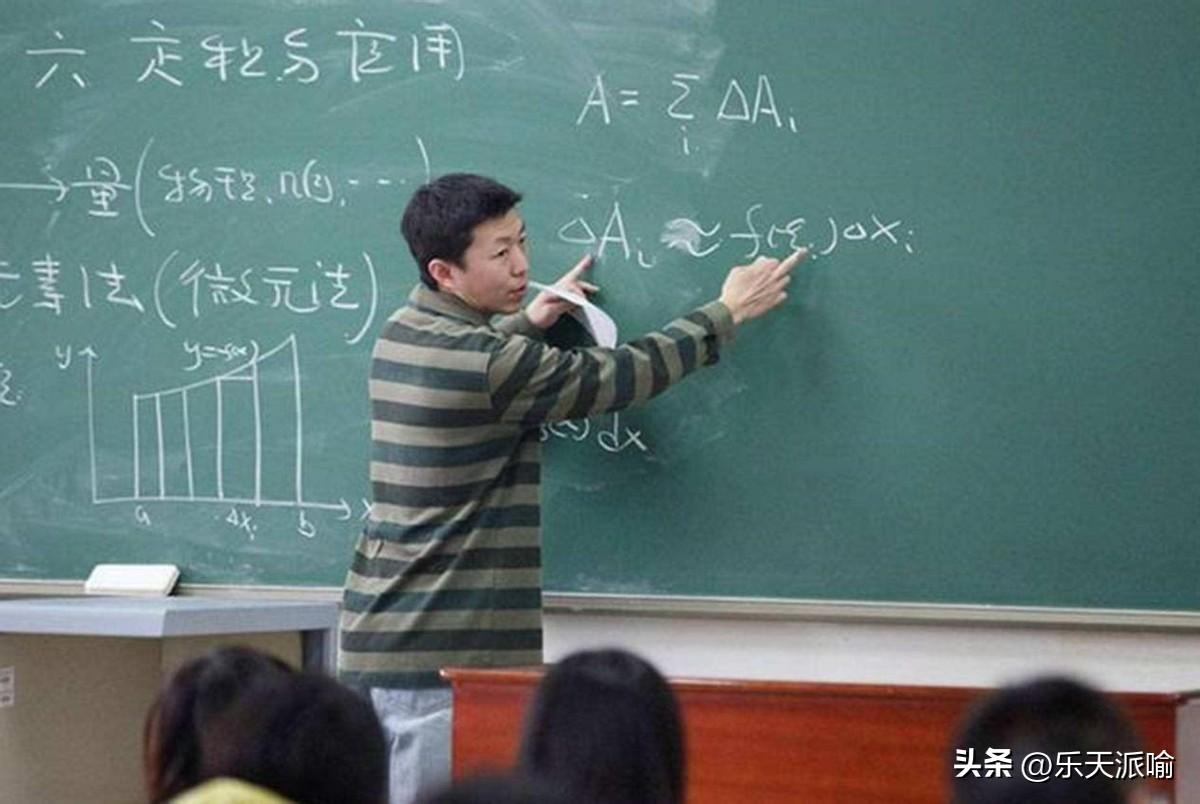 六 定积分应用
A = Σ ΔAᵢ
i
→量(物理、几何、……
ΔAᵢ ≈ f(ξᵢ)Δxᵢ
元素法(微元法)
y y=f(x)
dx
a Δxᵢ b x
头条 @乐天派喻